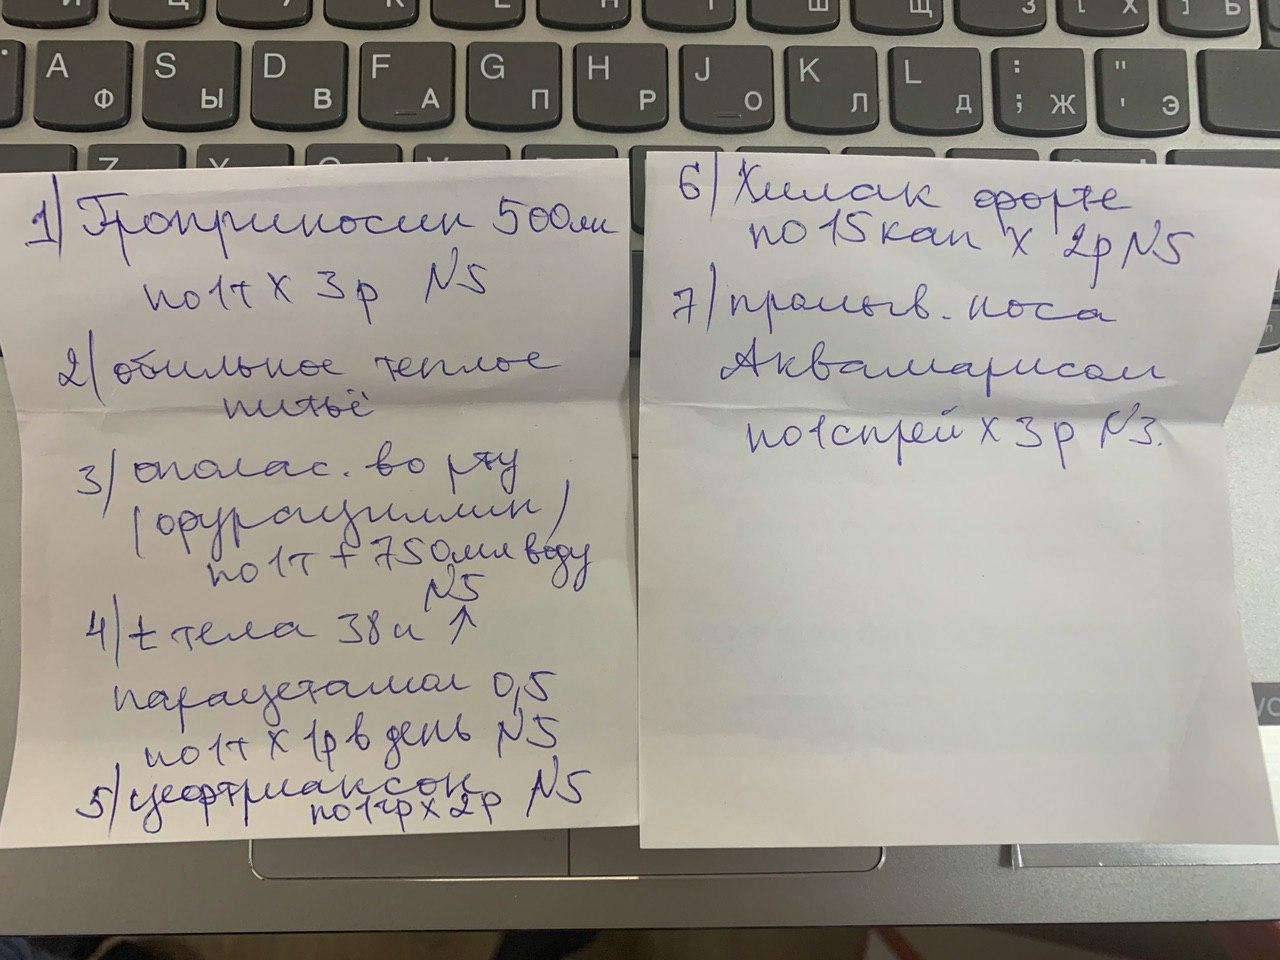 A Ф
S Ы
D В
F А
G П
H Р
J О
K Л
L Д
: ; Ж
" ' Э
1) Гроприносин 500мг
по 1т х 3р N5
2) обильное теплое
питьё
3) ополас. во рту
(фурациллин)
по 1т + 750мл воду
N5
4) t тела 38 и ↑
парацетамол 0,5
по 1т х 1р в день N5
5) цефтриаксон
по 1гр х 2р N5
6) Хилак форте
по 15 кап х 2р N5
7) промыв. носа
Аквамарисом
по 1 спрей х 3р N3.